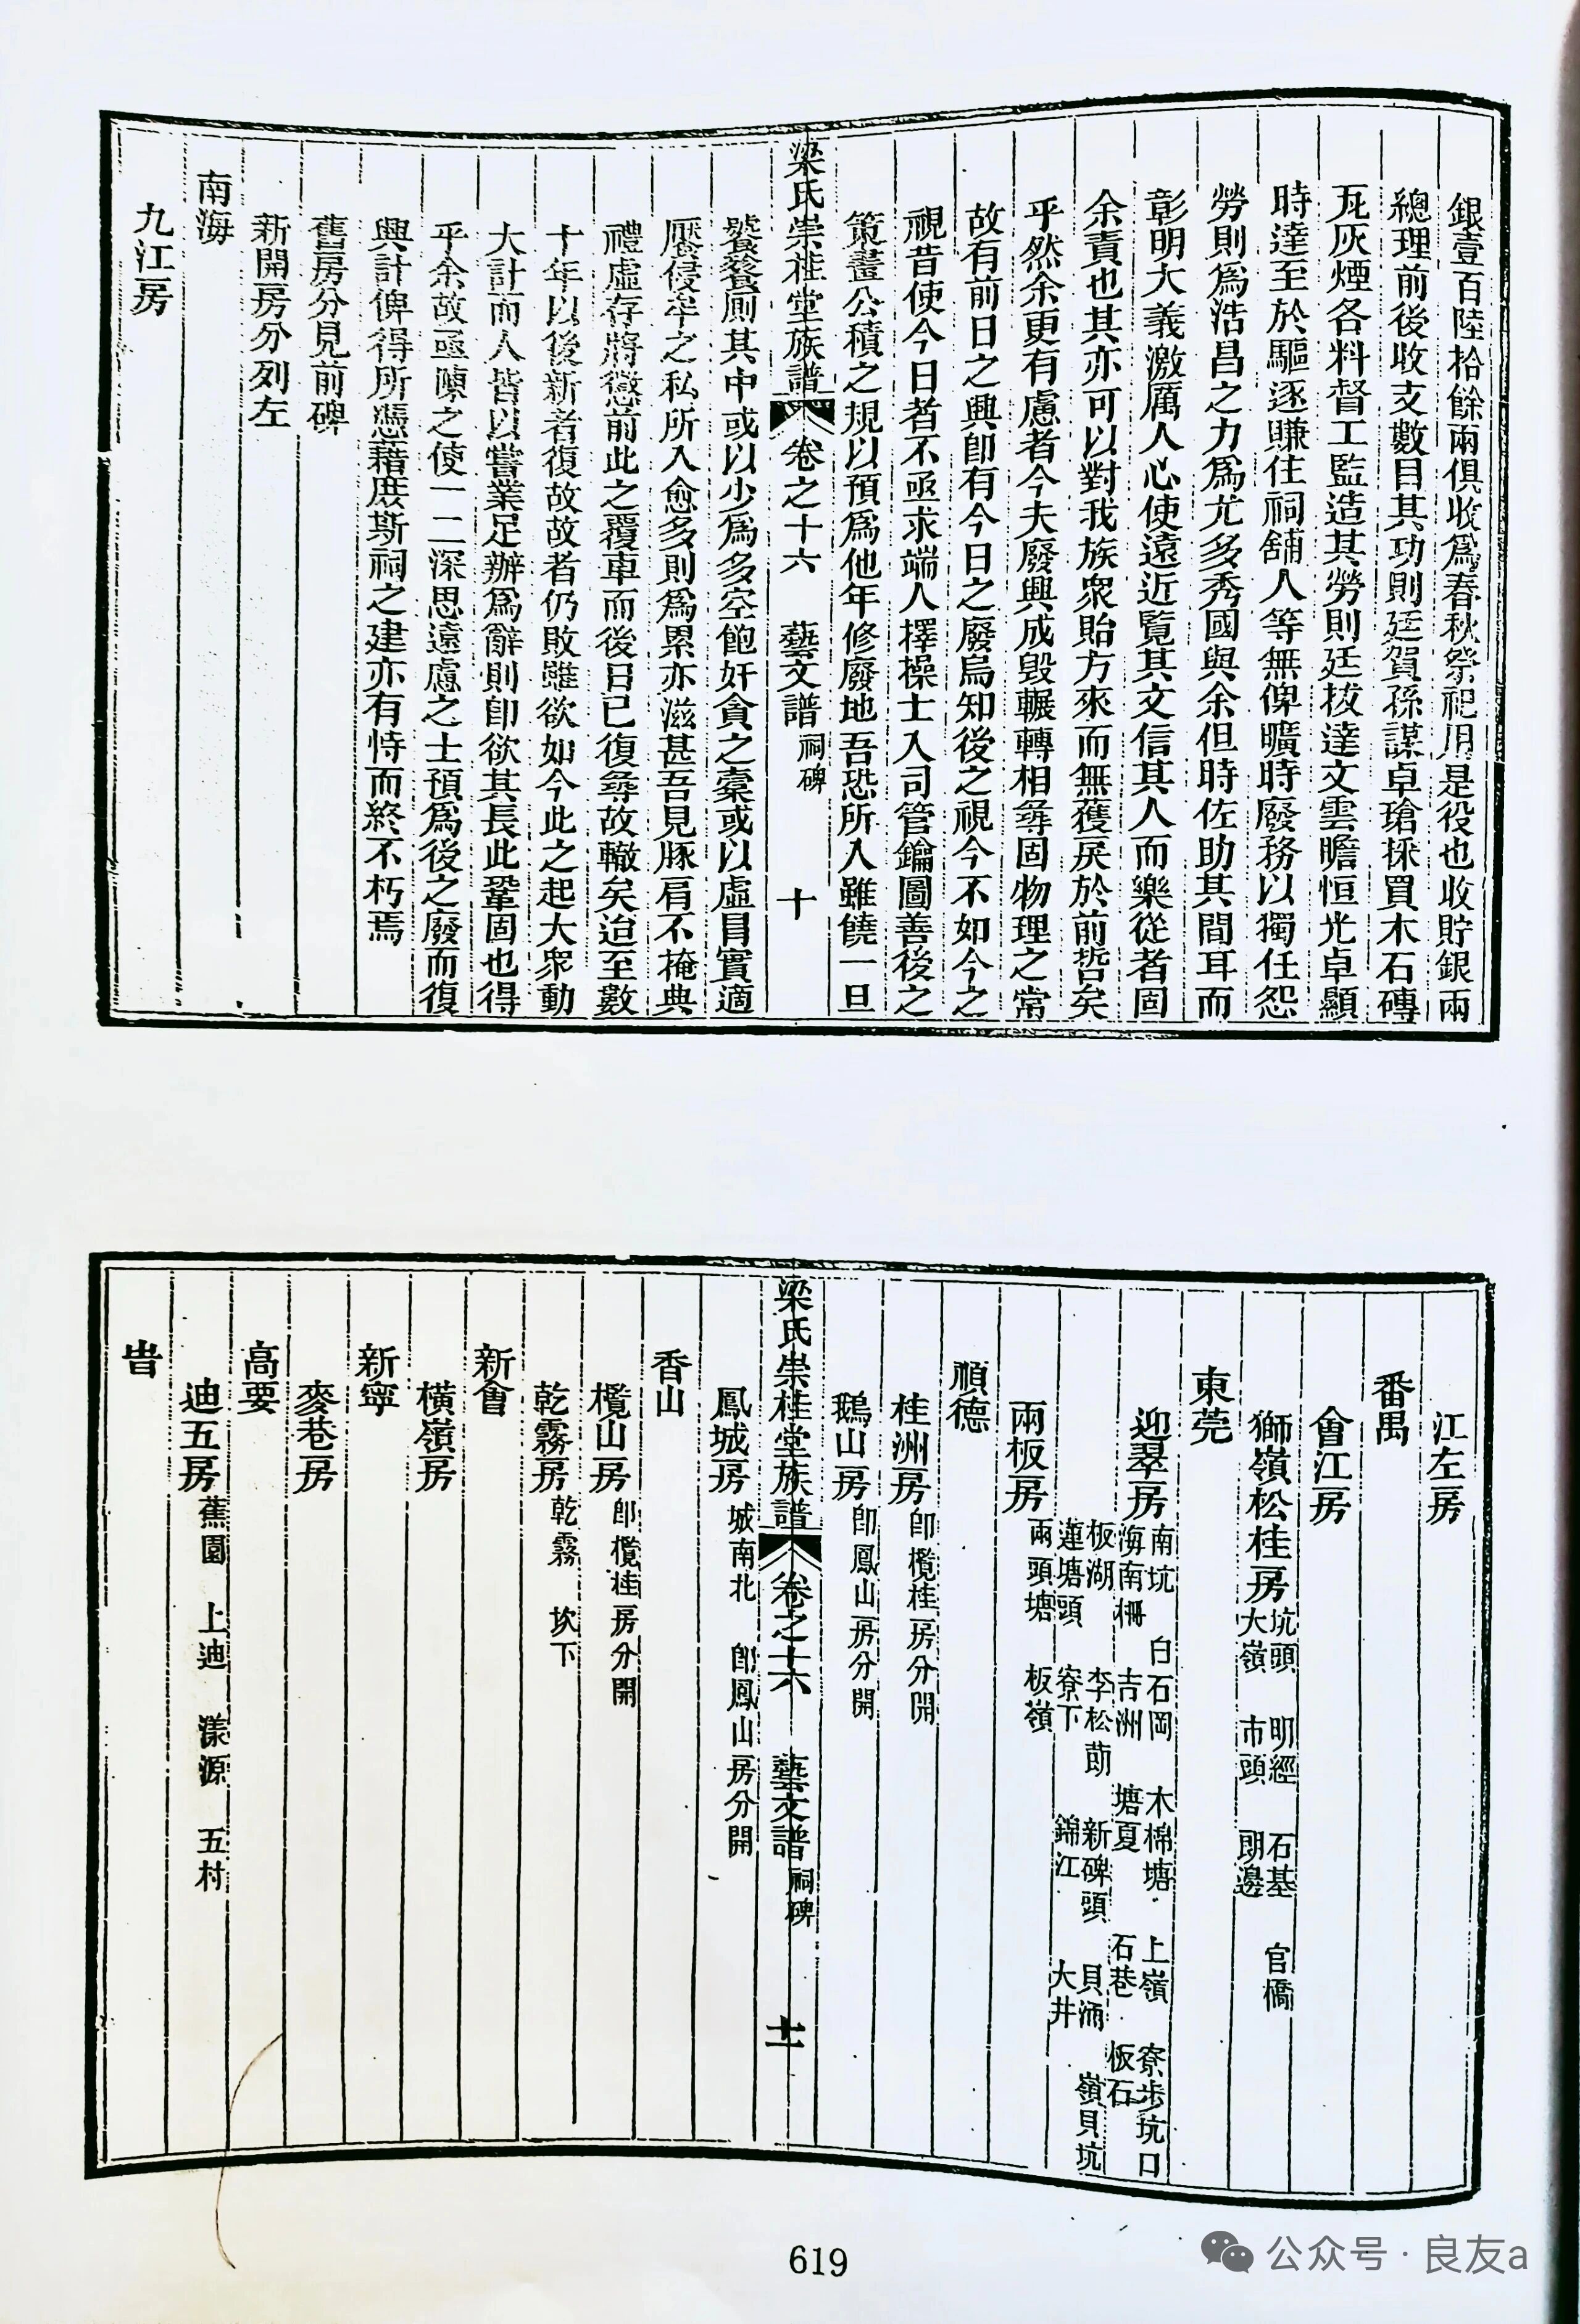 銀壹百陸拾餘兩俱收為春秋祭祀用是役也收貯銀兩
總理前後收支數目其功則廷賀孫謀卓瑲採買木石磚
瓦灰煙各料督工監造其勞則廷拔達文雲瞻恒光卓顯
時達至於驅逐賺住祠舖人等無俾曠時廢務以獨任怨
勞則為浩昌之力為尤多秀國與余但時佐助其間耳而
彰明大義激厲人心使遠近覽其文信其人而樂從者固
余責也其亦可以對我族衆貽方來而無蒦戾於前哲矣
乎然余更有慮者今夫廢興成毀輾轉相尋固物理之常
故有前日之興卽有今日之廢烏知後之視今不如今之
視昔使今日者不亟求端人擇操士入司管鑰圖善後之
策畫公積之規以預為他年修廢地吾恐所入雖饒一旦
梁氏崇桂堂族譜 卷之十六 藝文譜 祠碑 十
饕餮厠其中或以少為多空飽奸貪之橐或以虛目實適
屬侵牟之私所入愈多則為累亦滋甚吾見豚肩不掩典
禮虛存將懲前此之覆車而後日已復尋故轍矣迨至數
十年以後新者復故故者仍敗雖欲如今此之起大衆動
大計而人皆以嘗業足辦為辭則卽欲其長此鞏固也得
乎余故亟陳之使一二深思遠慮之士預為後之廢而復
興計俾得所憑藉庶斯祠之建亦有恃而終不朽焉
舊房分見前碑
新開房分列左
南海
九江房
江左房
番禺
會江房
獅嶺松桂房 坑頭 明經 石基 官橋
大嶺 市頭 朗邊
東莞
迎翠房 南坑 白石岡 木棉塘 上嶺 寮步坑口
海南柵 吉洲 塘夏 石巷 板石
板湖 李松蓢 新碑頭 貝涌 嶺貝坑
蓮塘頭 寮下 錦江 大井
兩板房 兩頭塘 板嶺
順德
桂洲房 卽欖桂房分開
鵝山房 卽鳳山房分開
梁氏崇桂堂族譜 卷之十六 藝文譜 祠碑 十一
鳳城房 城南北 卽鳳山房分開
香山
欖山房 卽欖桂房分開
乾霧房 乾霧 坎下
新會
橫嶺房
新寧
麥巷房
高要
迪五房 蕉園 上迪 漾源 五村
旹
619
公众号 · 良友a